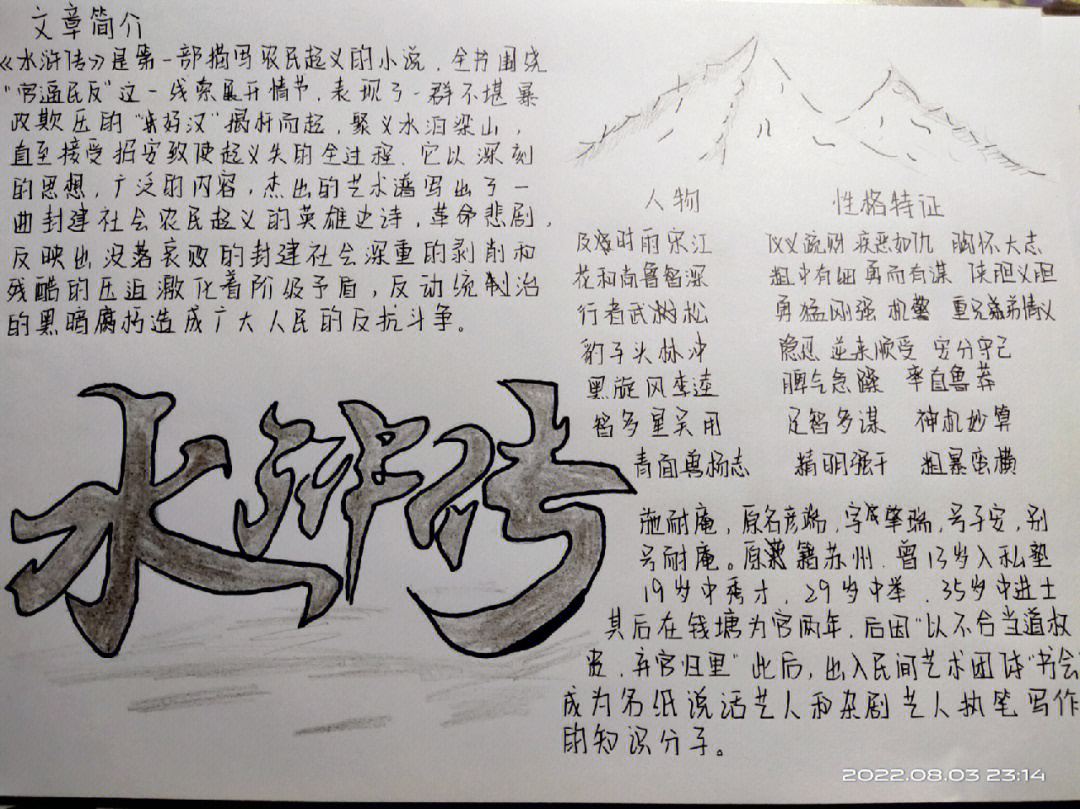 文章简介
《水浒传》是第一部描写农民起义的小说，全书围绕
"官逼民反"这一线索展开情节，表现了一群不堪暴
政欺压的"好汉"揭杆而起，聚义水泊梁山，
直至接受招安致使起义失的全过程，它以深刻
的思想，广泛的内容，杰出的艺术谱写出了一
曲封建社会农民起义的英雄史诗，革命悲剧，
反映出没落衰败的封建社会深重的剥削和
残酷的压迫激化着阶级矛盾，反动统制治
的黑暗腐朽造成广大人民的反抗斗争。
水浒传
人物 性格特征
及时雨宋江 仗义疏财 疾恶如仇 胸怀大志
花和尚鲁智深 粗中有细 勇而有谋 侠胆义胆
行者武松 勇猛刚强 机警 重兄弟情义
豹子头林冲 隐忍 逆来顺受 安分守己
黑旋风李逵 脾气急躁 率直鲁莽
智多星吴用 足智多谋 神机妙算
青面兽杨志 精明强干 粗暴蛮横
施耐庵，原名彦端，字肇瑞，号子安，别
号耐庵。原籍苏州，曾13岁入私塾
19岁中秀才，29岁中举，35岁中进士
其后在钱塘为官两年，后因"以不合当道权
贵，弃官归里"此后，出入民间艺术团体"书会
成为名纸说话艺人和杂剧艺人执笔写作
的知识分子。
2022.08.03 23:14